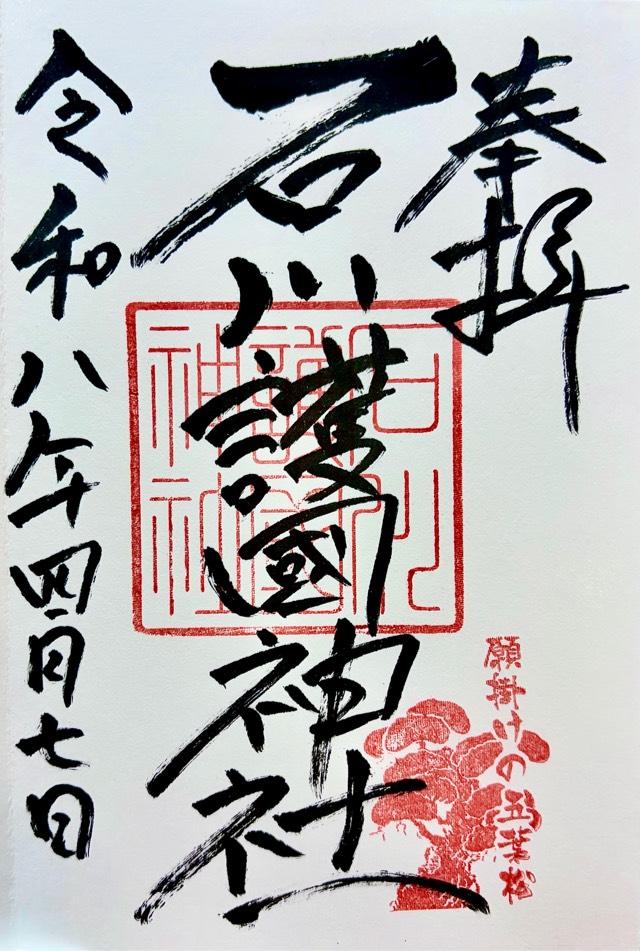 奉拝
石川護國神社
令和八年四月七日
石川
護國
神社
願掛けの五葉松